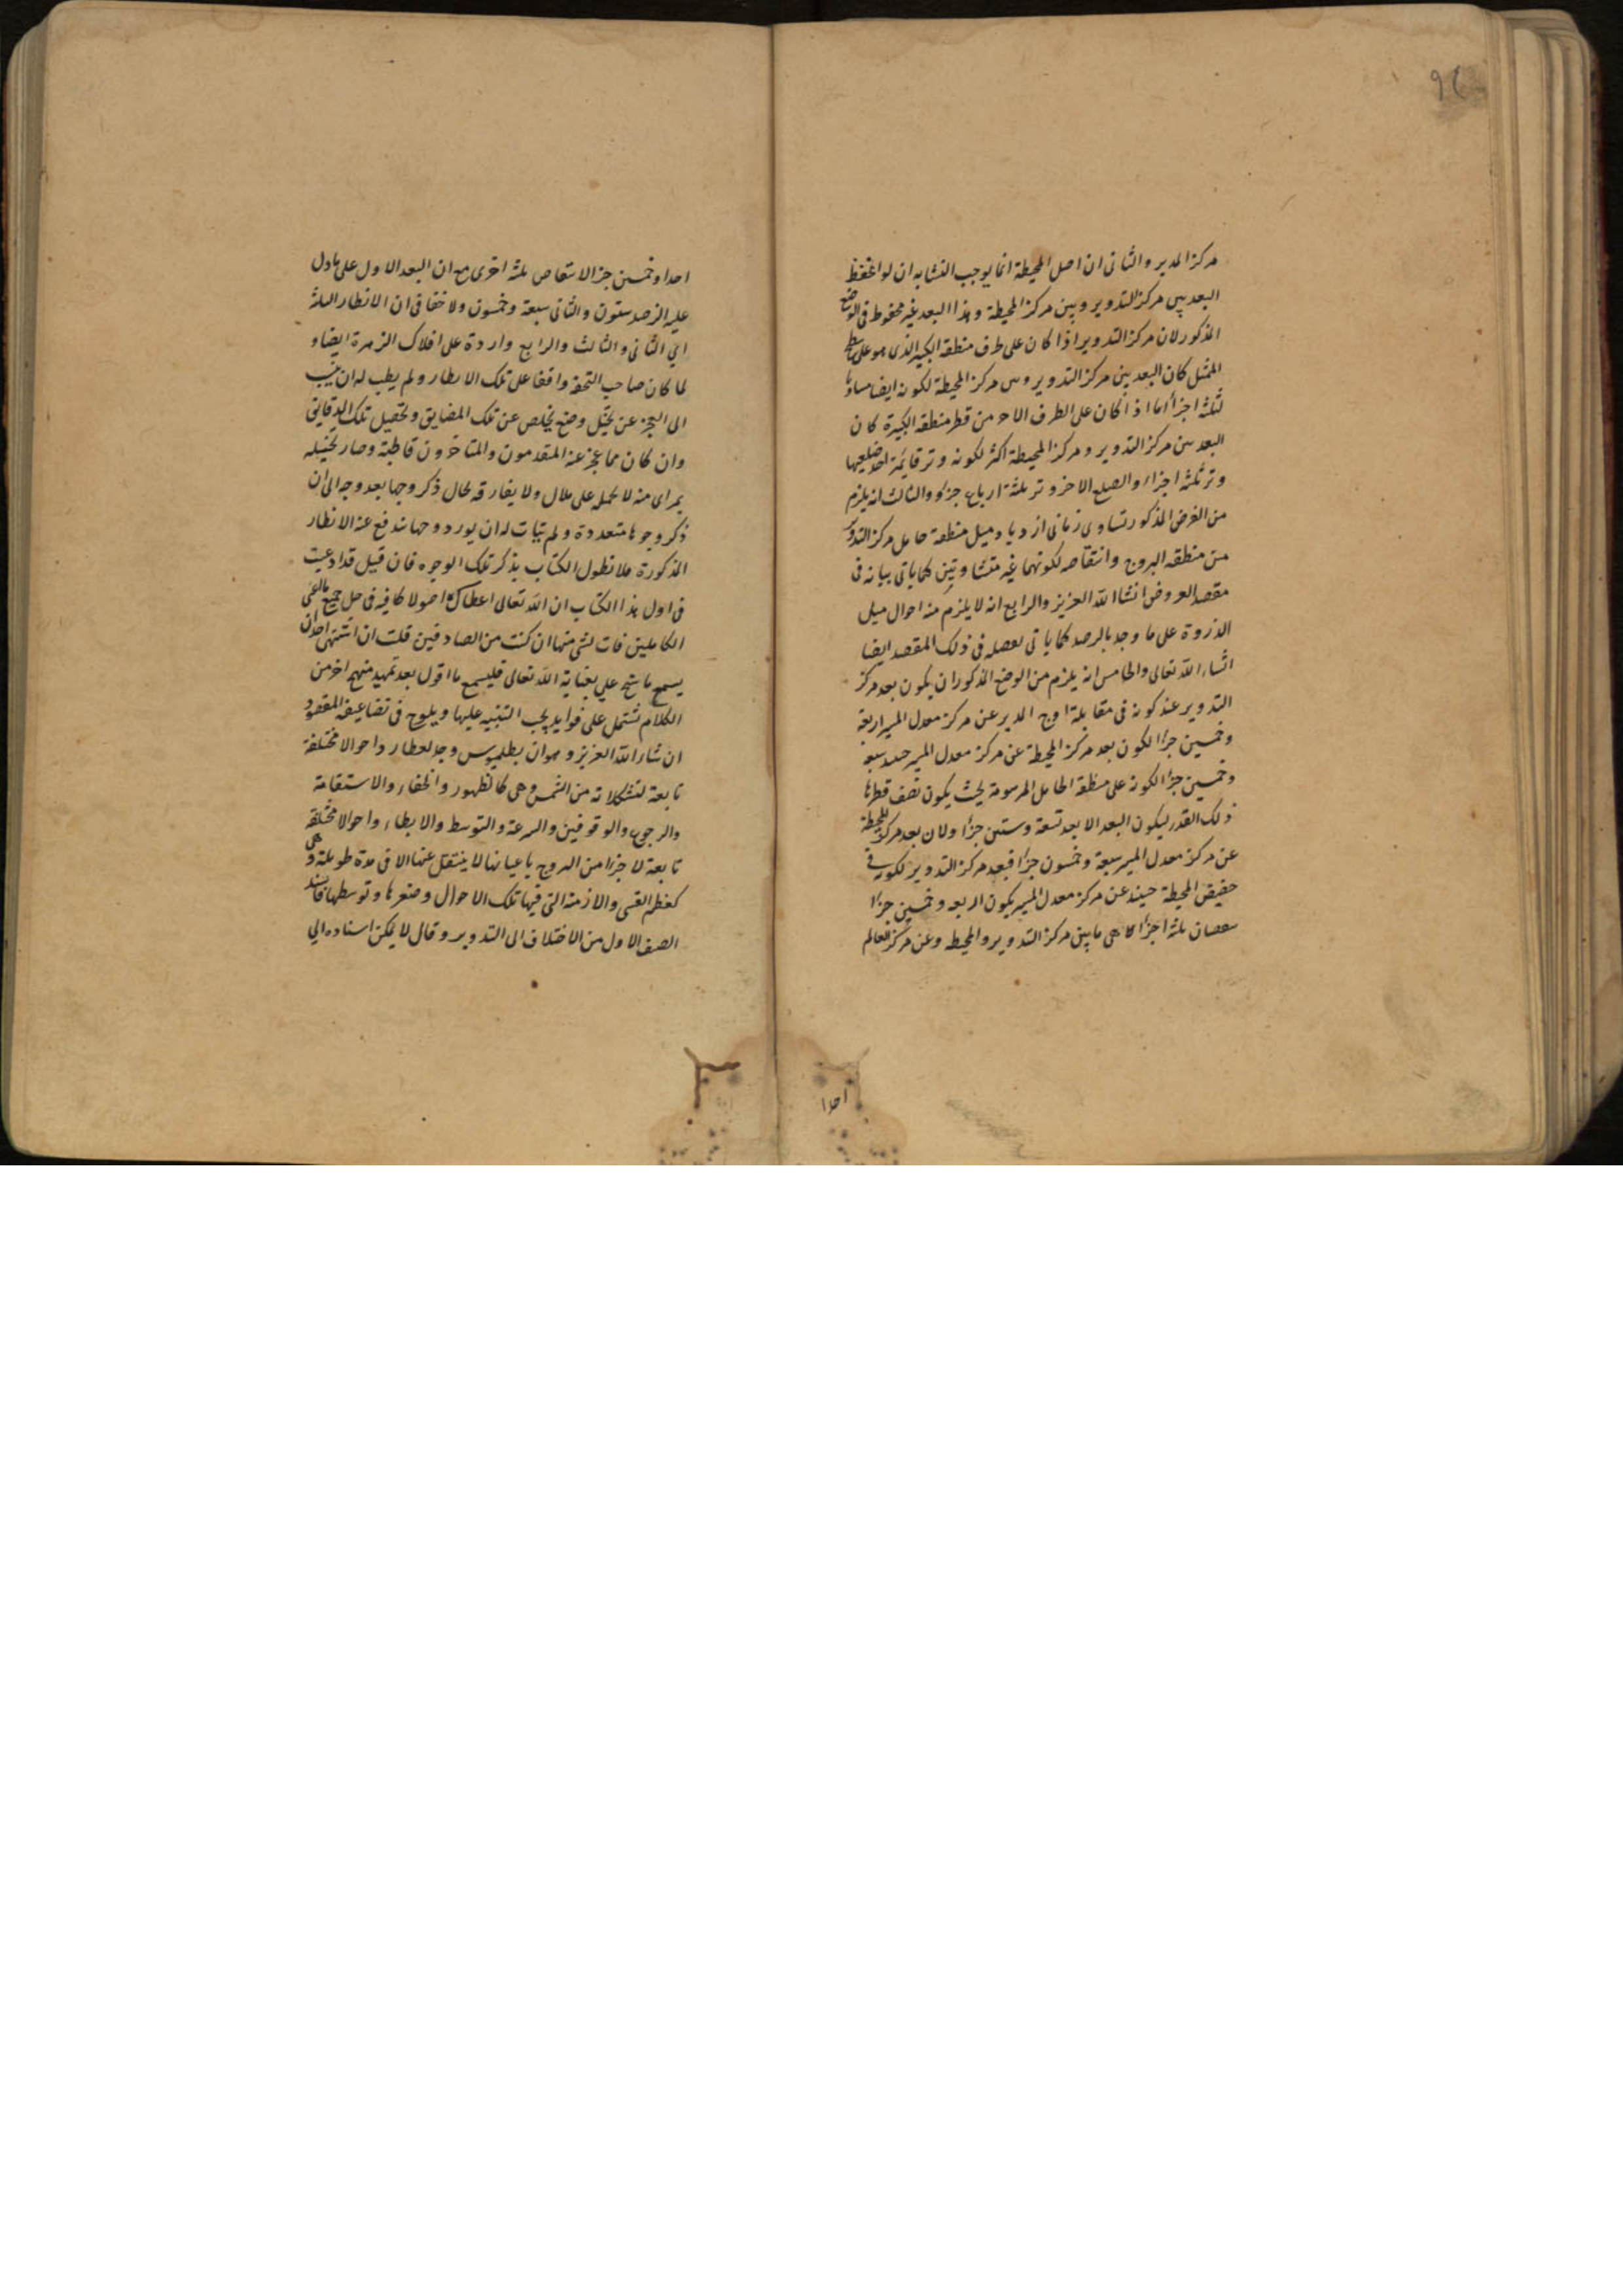 96
مركز المدير والثانى ان اصل المحيطة انما يوجب التشابه ان لو انحفظ
البعد بين مركز التدوير وبين مركز المحيطة وهذا البعد غير محفوظ فى الوضع
المذكور لان مركز التدوير اذا كان على طرف منطقة الكبير الذى هو على
الممثل كان البعد بين مركز التدوير وبين مركز المحيطة لكونه ايضا مساويا
لثلثة اجزأ اما اذا كان على الطرف الاخر من قطر منطقة الكبيرة كان
البعد بين مركز التدوير ومركز المحيطة اكثر لكونه وتر قائمة احد ضلعيها
وتر ثلثة اجزاء والضلع الاخر وتر ثلثة ارباع جزء والثالث انه يلزم
من الفرض المذكور تساوى زمانى ازدياد ميل منطقة حامل مركز التدوير
من منطقة البروج وانتقاصه لكونهما غير متساويتين كما ياتى بيانه فى
مقصد العروض انشا الله العزيز والرابع انه لا يلزم منه احوال ميل
الذروة على ما وجد بالرصد كما ياتى تفصيله فى ذلك المقصد ايضا
انشاء الله تعالى والخامس انه يلزم من الوضع المذكور ان يكون بعد مركز
التدوير عند كونه فى مقابلة اوج المدير عن مركز معدل المسير اربعة
وخمسين جزأ لكون بعد مركز المحيطة عن مركز معدل المسير حينئذ سبعة
وخمسين جزأ لكونه على منطقة الحامل المرسومة بحيث يكون نصف قطرها
ذلك القدر ليكون البعد الابعد تسعة وستين جزأ ولان بعد مركز المحيطة
عن مركز معدل المسير سبعة وخمسون جزأ فبعد مركز التدوير لكونه فى
حضيض المحيطة حينئذ عن مركز معدل المسير يكون اربعة وخمسين جزأ
بنقصان ثلثة اجزأ هى ما بين مركز التدوير والمحيطة وعن مركز العالم
احدا
احدا وخمسين جزأ لانتقاص ثلثة اخرى مع ان البعد الاول على ما دل
عليه الرصد ستون والثانى سبعة وخمسون ولا خفا فى ان الانظار الثلثة
اعنى الثانى والثالث والرابع واردة على افلاك الزهرة ايضا و
لما كان صاحب التحفة واقفا على تلك الانظار ولم يطب له ان ينسب
الى العجز عن تخيل وضع يخلص عن تلك المضايق وتحصيل تلك الدقايق
وان كان مما عجز عنه المتقدمون والمتاخرون قاطبة وصار تخيله
بمراى منه لا يحمله على ملال ولا يفارقه بحال ذكر وجها بعد وجه الى ان
ذكر وجوها متعددة ولم يتات له ان يورد وجها تندفع عنه الانظار
المذكورة فلا نطول الكتاب بذكر تلك الوجوه فان قيل قد ادعيت
فى اول هذا الكتاب ان الله تعالى اعطاك اصولا كافيه فى حل جميع
الكاملين فات بشى منها ان كنت من الصادقين قلت ان اشتهى احد ان
يسمع ما سنح على بعناية الله تعالى فليسمع ما اقول بعد تمهيد منهج اخر من
الكلام تشتمل على فوايد يجب التنبيه عليها ويلوح فى تضاعيفه المقصود
ان شاء الله العزيز وهو ان بطلميوس وجد لعطارد احوالا مختلفة
تابعة لتشكلاته من الشمس وهى كالظهور والخفاء والاستقامة
والرجوع والوقوفين والسرعة والتوسط والابطاء واحوالا مختلفة
تابعة لاجزاء من البروج باعيانها لا ينتقل عنها الا فى مدة طويلة وهى
كعظم القسى والازمنة التى فيها تلك الاحوال وصغرها وتوسطها فاسند
الصنف الاول من الاختلاف الى التدوير وقال لا يمكن اسناده الى